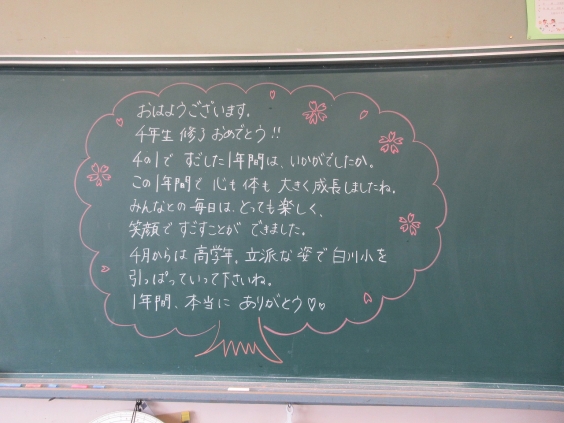 おはようございます。
4年生 修了 おめでとう!!
4の1で すごした1年間は、いかがでしたか。
この1年間で 心も体も 大きく成長しましたね。
みんなとの毎日は、とっても楽しく、
笑顔で すごすことが できました。
4月からは 高学年。立派な姿で白川小を
引っぱっていって下さいね。
1年間、本当に ありがとう♡♡